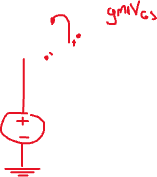 gm1VGS
+
−